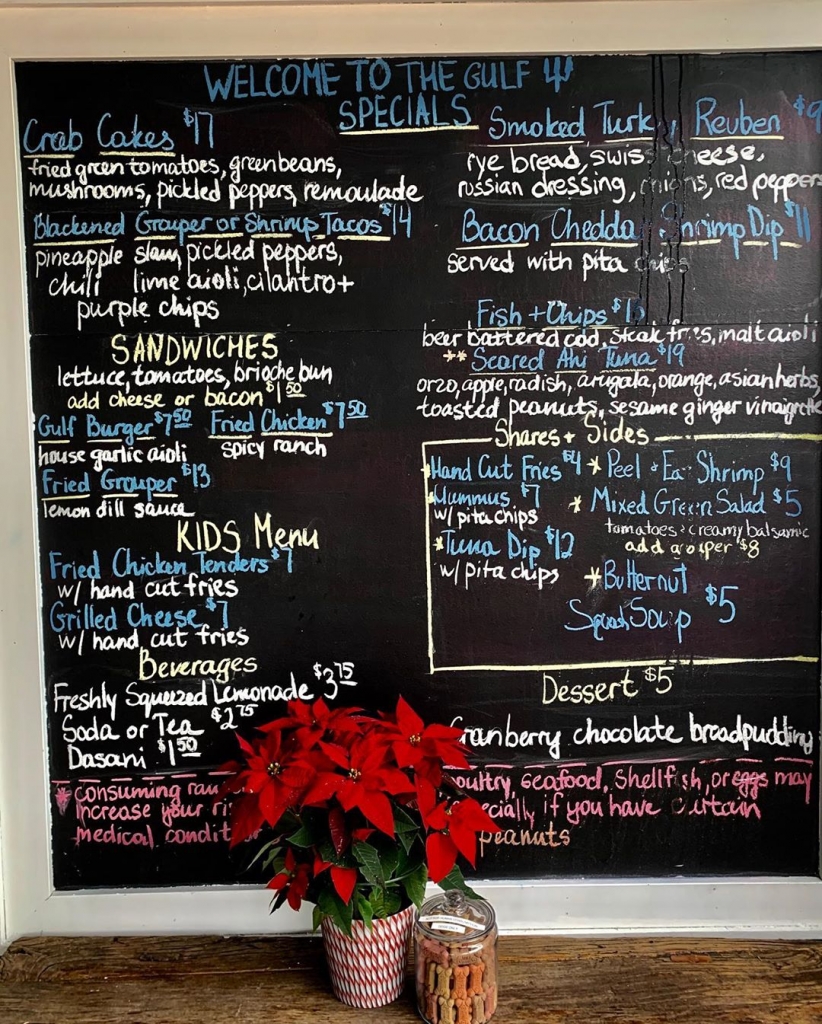 WELCOME TO THE GULF
SPECIALS
Crab Cakes $17
fried green tomatoes, green beans,
mushrooms, pickled peppers, remoulade
Blackened Grouper or Shrimp Tacos $14
pineapple slaw, pickled peppers,
chili lime aioli, cilantro +
purple chips
SANDWICHES
lettuce, tomatoes, brioche bun
add cheese or bacon $1.50
Gulf Burger $7.50
house garlic aioli
Fried Chicken $7.50
spicy ranch
Fried Grouper $13
lemon dill sauce
KIDS Menu
Fried Chicken Tenders $7
w/ hand cut fries
Grilled Cheese $7
w/ hand cut fries
Beverages
Freshly Squeezed Lemonade $3.75
Soda or Tea $2.75
Dasani $1.50
Smoked Turk y Reuben $9
rye bread, swiss cheese,
russian dressing, onions, red peppers
Bacon Chedda Shrimp Dip $11
served with pita chips
Fish + Chips
beer battered cod, steak fries, malt aioli
** Seared Ahi Tuna $19
orzo, apple, radish, arugala, orange, asian herbs,
toasted peanuts, sesame ginger vinaigrette
Shares + Sides
*Hand Cut Fries $4
*Hummus $7
w/ pita chips
*Tuna Dip $12
w/ pita chips
*Peel + Eat Shrimp $9
*Mixed Green Salad $5
tomatoes + creamy balsamic
add grouper $8
*Butternut
Squash Soup $5
Dessert $5
Cranberry chocolate breadpudding
* consuming raw poultry, seafood, Shellfish, or eggs may
increase your if you have certain
medical condit
peanuts